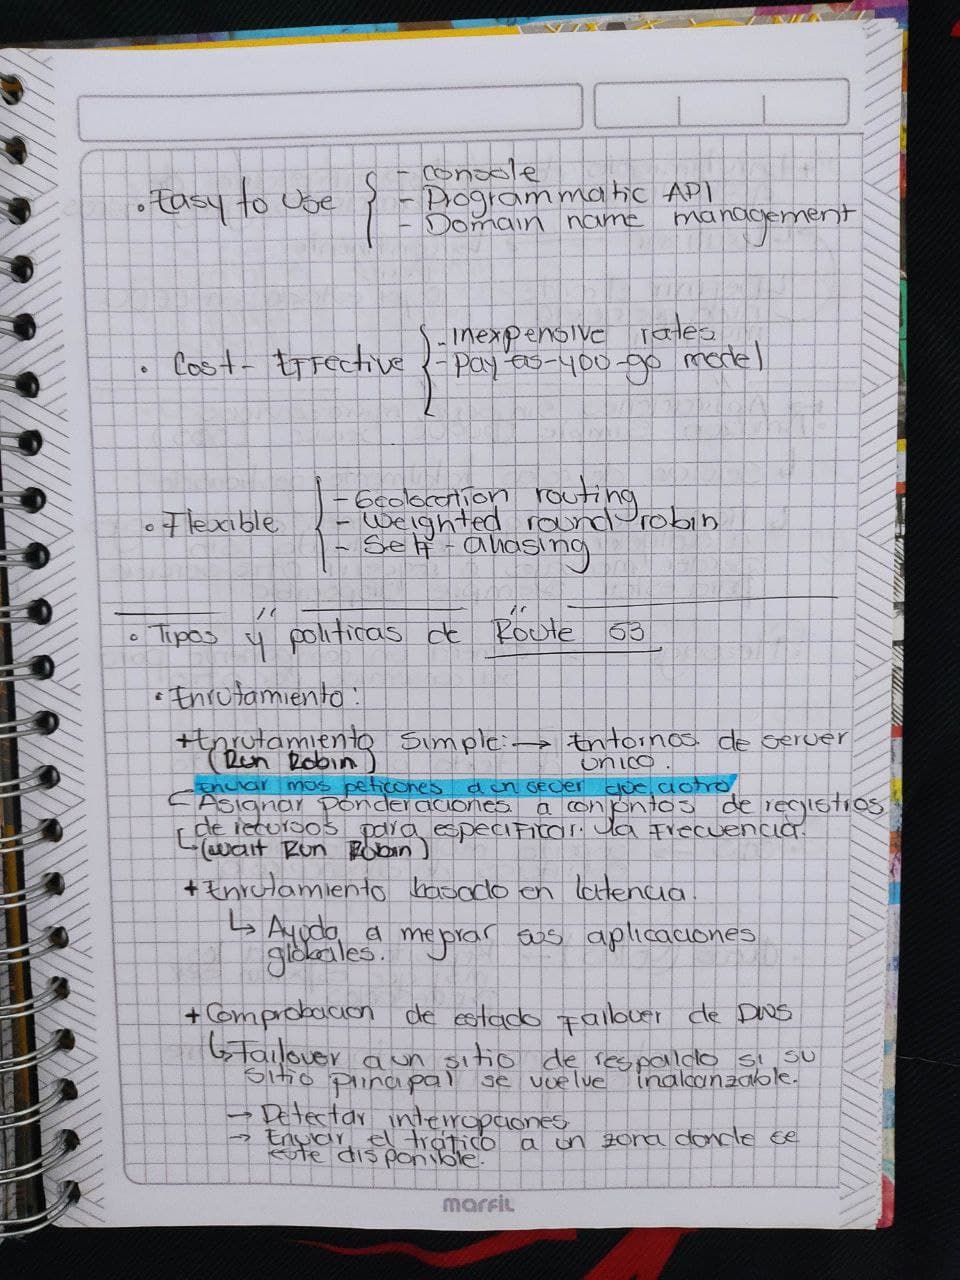 - console
. Easy to use { - Programmatic API
- Domain name management
- Inexpensive rates
. Cost-Effective { - Pay-as-you-go model
- Geolocation routing
. Flexible { - Weighted round-robin
- Self-aliasing
. Tipos y políticas de "Route 53"
. Enrutamiento:
+ Enrutamiento Simple: → Entornos de server
(Run Robin) único.
Enviar mas peticones a un sever que a otro
Asignar ponderaciones a conjuntos de registros
de recursos para especificar la frecuencia.
↳ (wait Run Robin)
+ Enrutamiento basado en latencia.
↳ Ayuda a mejorar sus aplicaciones
globales.
+ Comprobacion de estado Failover de DNS
↳ Failover a un sitio de respaldo si su
sitio principal se vuelve inalcanzable.
→ Detectar interrupciones
→ Enviar el tráfico a un zona donde se
este disponible.
marfil